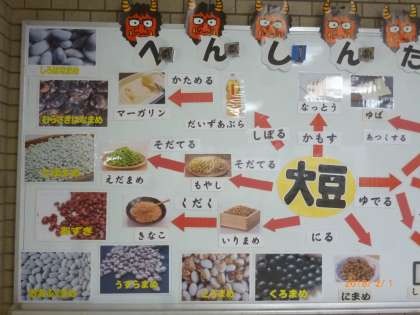 へんしんだ
しろいんげんまめ
むらさきはなまめ
あずき
うずらまめ
とらまめ
くろまめ
にまめ
マーガリン
かためる
だいずあぶら
しぼる
なっとう
かもす
ゆば
あつくする
えだまめ
そだてる
もやし
そだてる
大豆
ゆでる
きなこ
くだく
いりまめ
にる